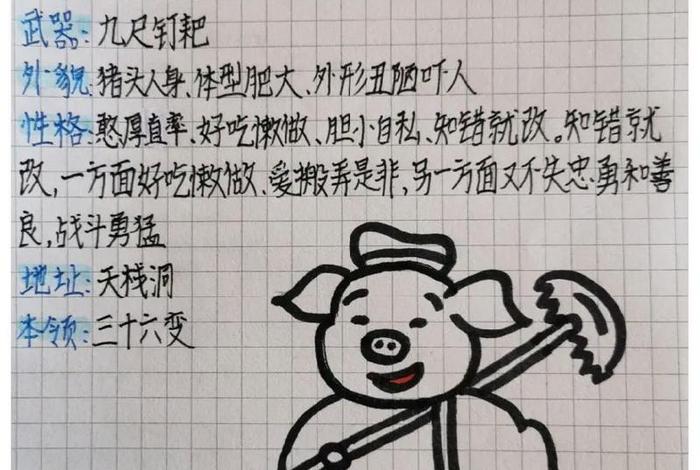 武器:九尺钉耙
外貌:猪头人身、体型肥大、外形丑陋吓人
性格:憨厚直率、好吃懒做、胆小自私、知错就改。知错就
改,一方面好吃懒做、爱搬弄是非,另一方面又不失忠勇和善
良,战斗勇猛
地址:天栈洞
本领:三十六变